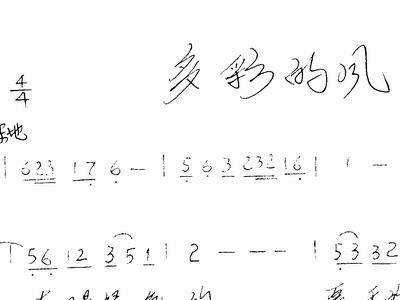 多彩的风
4/4
地
| 623 17 6 — | 5 6 3 232 16 | 1 —
| 56 12 351 | 2 — — — | 53 32